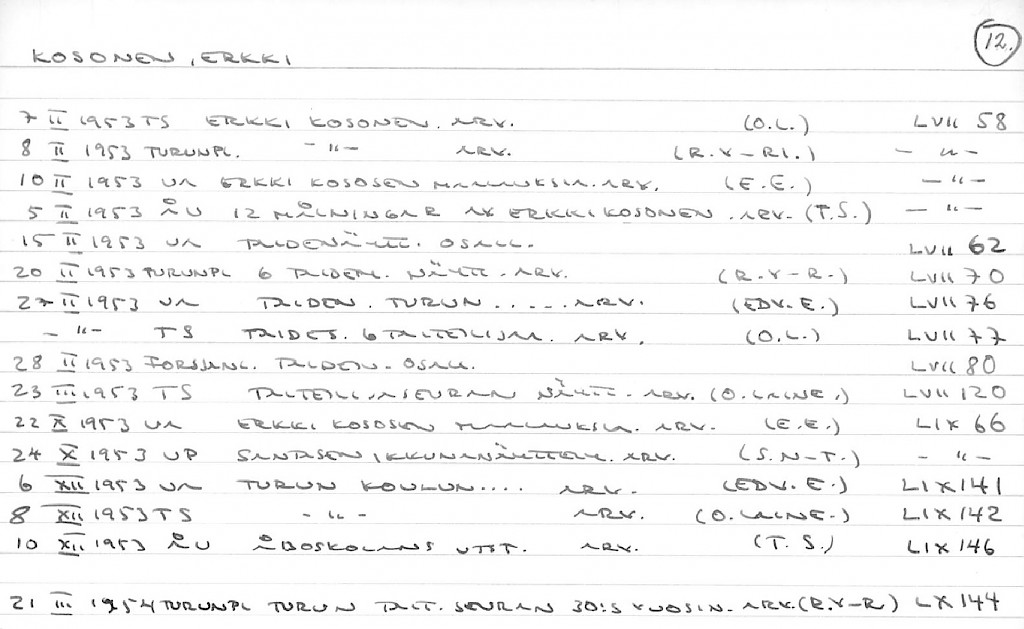 12.
KOSONEN, ERKKI
7 II 1953 TS ERKKI KOSONEN. ARV. (O.L.) LVII 58
8 II 1953 TURUNPL. -"- ARV. (R.V-RI.) -"-
10 II 1953 UA ERKKI KOSOSEN MAALAUKSIA. ARV. (E.E.) -"-
5 II 1953 ÅU 12 MÅLNINGAR AV ERKKI KOSONEN. ARV. (T.S.) -"-
15 II 1953 UA TAIDENÄYTT. OSALL. LVII 62
20 II 1953 TURUNPL 6 TAIDEM. NÄYTT. ARV. (R.V-R.) LVII 70
27 II 1953 UA TAIDEN. TURUN ..... ARV. (EDV.E.) LVII 76
-"- TS TAIDET. 6 TAITEILIJAA. ARV. (O.L.) LVII 77
28 II 1953 FORSSANL. TAIDEN. OSALL. LVII 80
23 III 1953 TS TAITEILIJASEURAN NÄYTT. ARV. (O. LAINE.) LVII 120
22 X 1953 UA ERKKI KOSOSEN MAALAUKSIA. ARV. (E.E.) LIX 66
24 X 1953 UP SANTASEN IKKUNANÄYTTELY. ARV. (S.N-T.) -"-
6 XII 1953 UA TURUN KOULUN.... ARV. (EDV. E.) LIX 141
8 XII 1953 TS -"- ARV. (O. LAINE.) LIX 142
10 XII 1953 ÅU ÅBOSKOLANS UTST. ARV. (T. S.) LIX 146
21 III 1954 TURUNPL TURUN TAIT. SEURAN 30:S VUOSIN. ARV. (R.V-R) LX 144